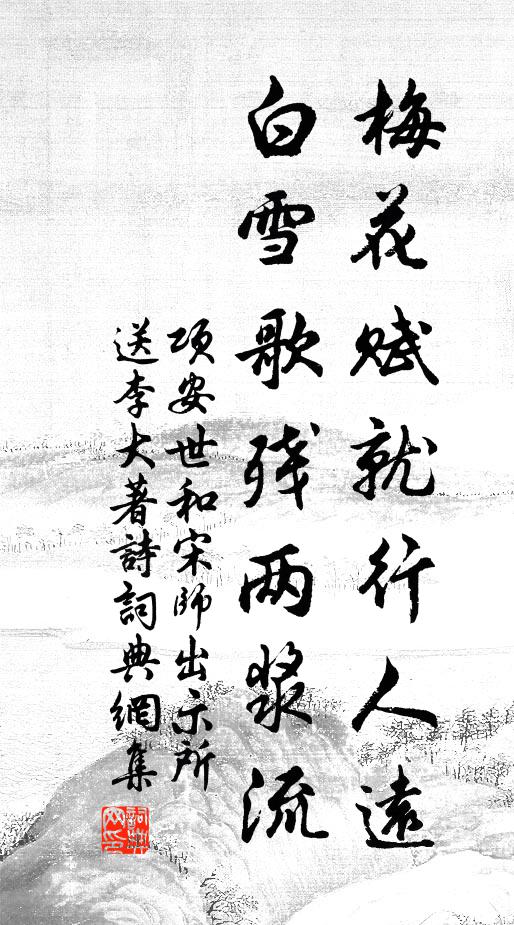 梅花赋就行人遠
白雪歌残两桨流
项安世和宋師出示所
送李大著詩詞典網集